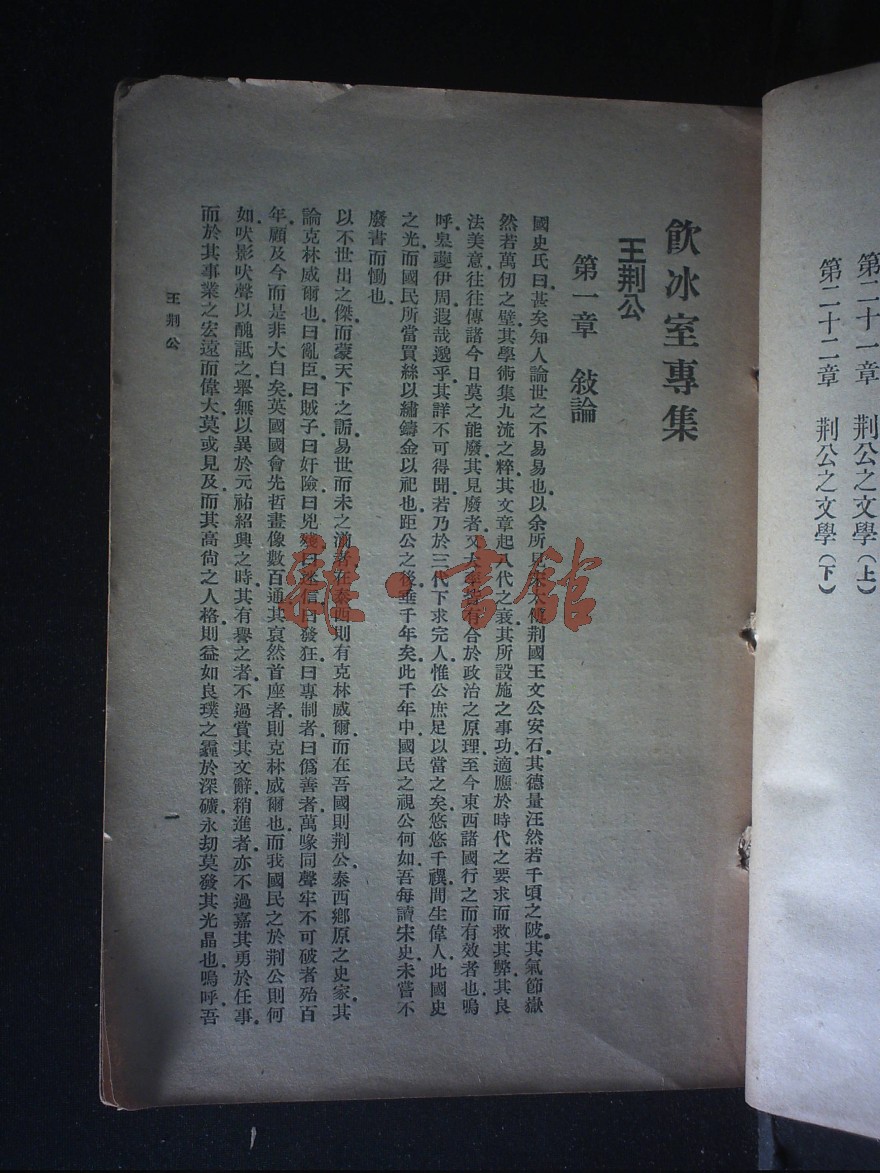 第二十一章　荆公之文學（上）
第二十二章　荆公之文學（下）
飲冰室專集
王荆公
第一章　敍論
國史氏曰甚矣知人論世之不易易也以余所見宋太傅荆國王文公安石其德量汪然若千頃之陂其氣節嶽
然若萬仞之壁其學術集九流之粹其文章起八代之衰其所設施之事功適應於時代之要求而救其弊其良
法美意往往傳諸今日莫之能廢其見廢者又大率皆有合於政治之原理至今東西諸國行之而有效者也嗚
呼臯夔伊周遐哉邈乎其詳不可得聞若乃於三代下求完人惟公庶足以當之矣悠悠千禩間生偉人此國史
之光而國民所當買絲以繡鑄金以祀也距公之後垂千年矣此千年中國民之視公何如吾每讀宋史未嘗不
廢書而慟也
以不世出之傑而蒙天下之詬易世而未之湔者在泰西則有克林威爾而在吾國則荆公泰西鄉原之史家其
論克林威爾也曰亂臣曰賊子曰奸險曰兇殘曰迷信曰發狂曰專制者曰僞善者萬喙同聲牢不可破者殆百
年顧及今而是非大白矣英國國會先哲畫像數百通其裒然首座者則克林威爾也而我國民之於荆公則何
如吠影吠聲以醜詆之舉無以異於元祐紹興之時其有譽之者不過賞其文辭稍進者亦不過嘉其勇於任事
而於其事業之宏遠而偉大莫或見及而其高尙之人格則益如良璞之霾於深礦永劫莫發其光晶也嗚呼吾
王荆公
一
雜·書館